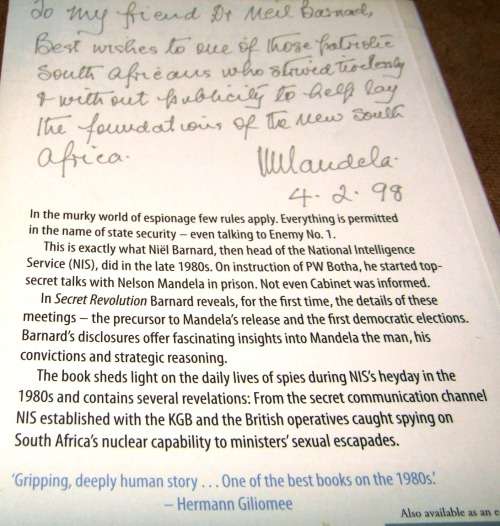 To my friend Dr Neil Barnard,
Best wishes to one of those patriotic
South Africans who strived tirelessly
& without publicity to help lay
the foundations of the new South
Africa.
NMandela.
4. 2. 98
In the murky world of espionage few rules apply. Everything is permitted
in the name of state security – even talking to Enemy No. 1.
This is exactly what Niël Barnard, then head of the National Intelligence
Service (NIS), did in the late 1980s. On instruction of PW Botha, he started top-
secret talks with Nelson Mandela in prison. Not even Cabinet was informed.
In Secret Revolution Barnard reveals, for the first time, the details of these
meetings – the precursor to Mandela's release and the first democratic elections.
Barnard's disclosures offer fascinating insights into Mandela the man, his
convictions and strategic reasoning.
The book sheds light on the daily lives of spies during NIS's heyday in the
1980s and contains several revelations: From the secret communication channel
NIS established with the KGB and the British operatives caught spying on
South Africa's nuclear capability to ministers' sexual escapades.
'Gripping, deeply human story . . . One of the best books on the 1980s.'
– Hermann Giliomee
Also available as an e